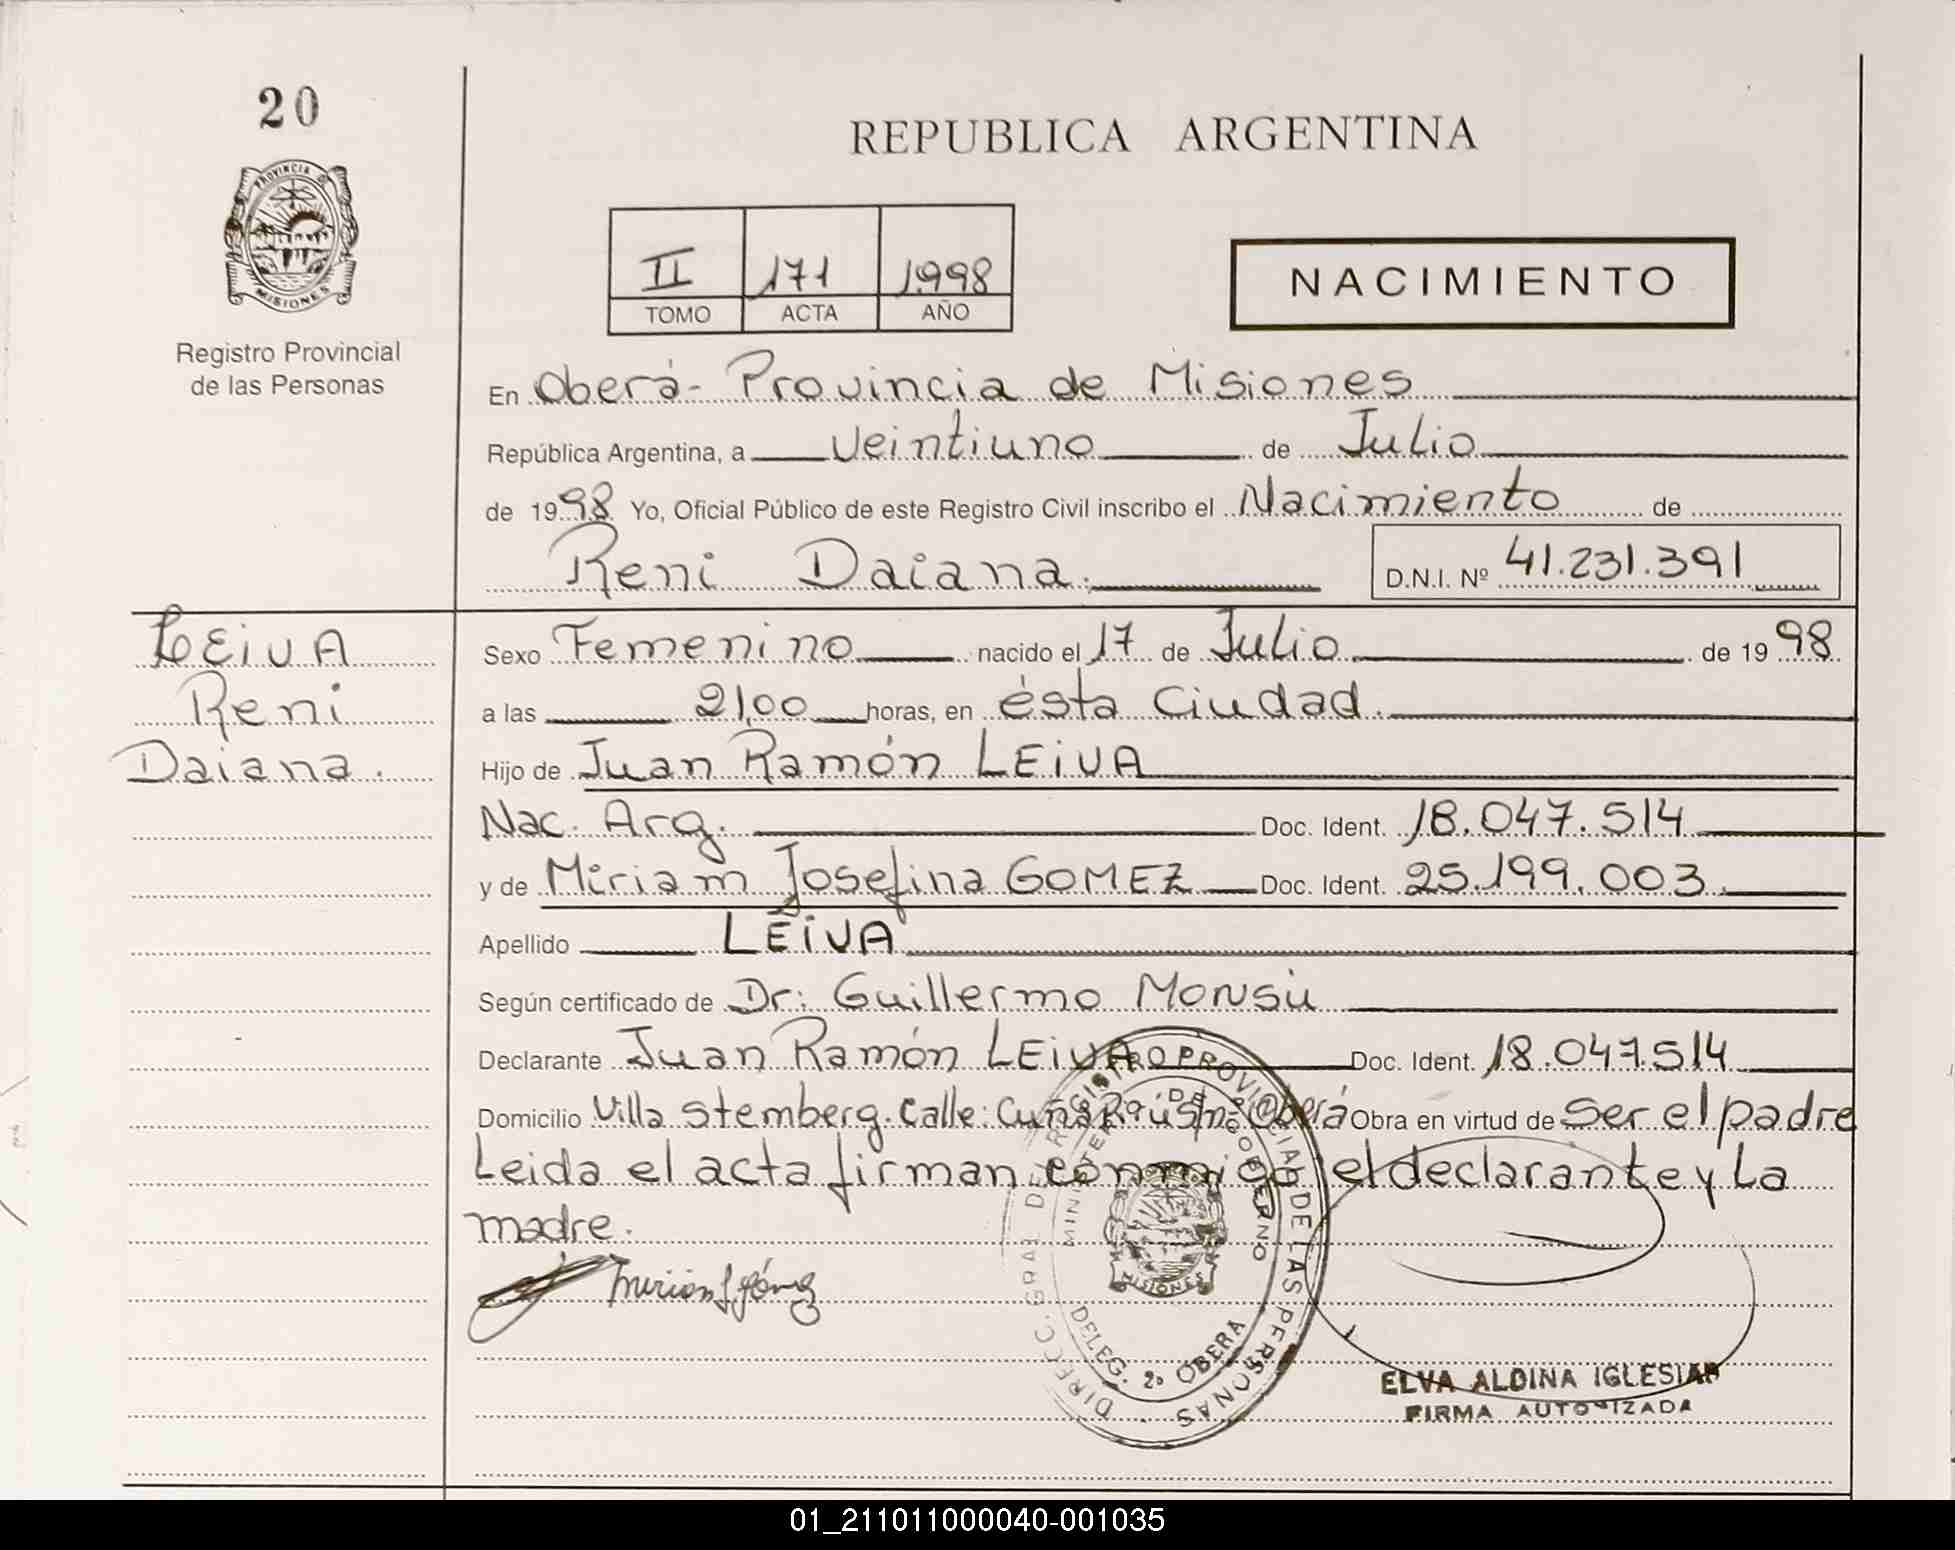 20
PROVINCIA D
MISIONES
Registro Provincial
de las Personas
REPUBLICA ARGENTINA
II 171 1.998
TOMO ACTA AÑO
NACIMIENTO
En Oberá- Provincia de Misiones
República Argentina, a veintiuno de Julio
de 1998 Yo, Oficial Público de este Registro Civil inscribo el Nacimiento de
Reni Daiana.
D.N.I. Nº 41.231.391
LEIVA
Reni
Daiana.
Sexo Femenino nacido el 17 de Julio de 1998
a las 21,00 horas, en ésta Ciudad.
Hijo de Juan Ramón LEIVA
Nac. Arg. Doc. Ident. 18.047.514
y de Miriam Josefina GOMEZ Doc. Ident. 25.199.003.
Apellido LEIVA
Según certificado de Dr: Guillermo Monsú
Declarante Juan Ramón LEIVA Doc. Ident. 18.047.514
Domicilio Villa Stemberg. Calle: Oberá Obra en virtud de ser el padre
Leida el acta firman conmigo el declarante y La
madre.
Mirian J Gómez
DIREC. GRAL DE REGISTRO PROVINCIAL DE LAS PERSONAS
MINISTERIO DE GOBIERNO
MISIONES
DELEG. 2ª OBERA
ELVA ALDINA IGLESIAS
FIRMA AUTORIZADA
01_211011000040-001035